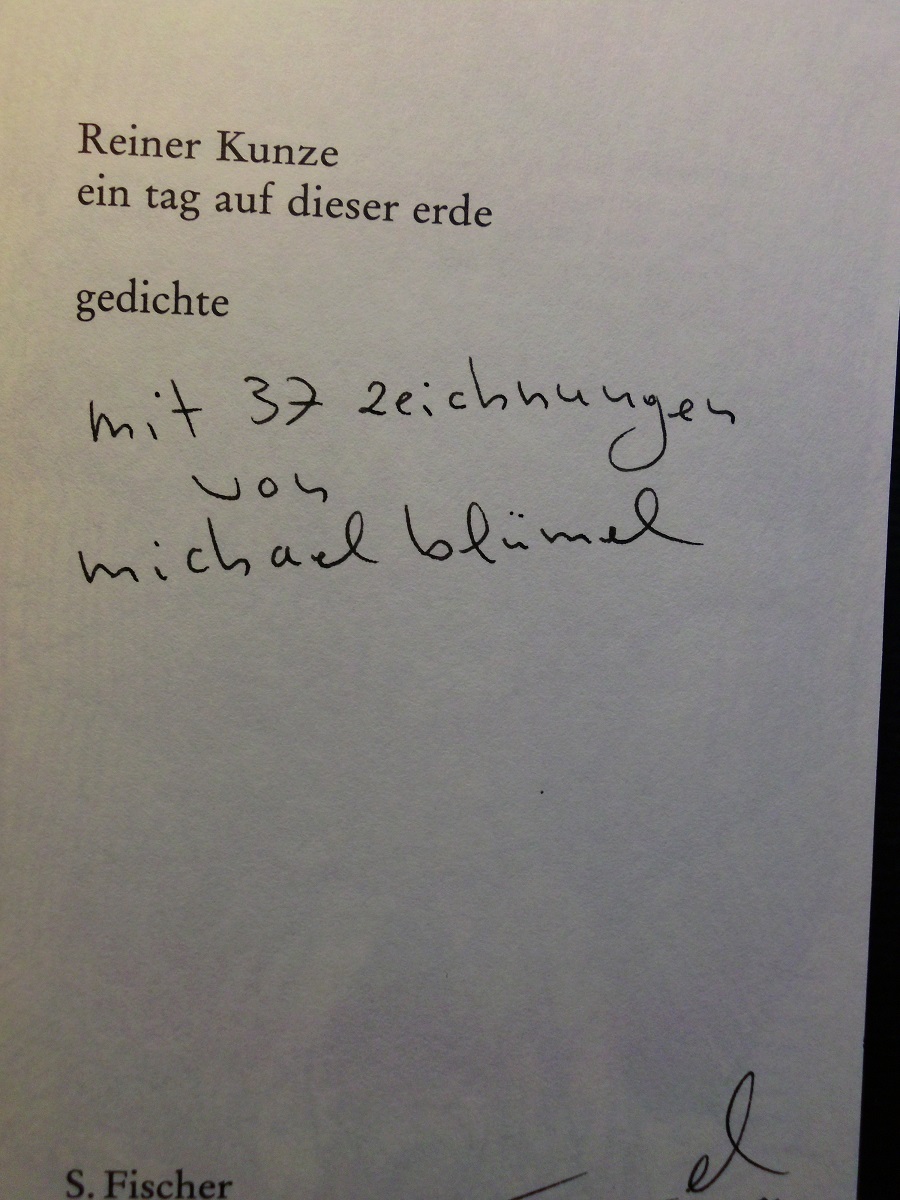 Reiner Kunze
ein tag auf dieser erde
gedichte
mit 37 zeichnungen
von
michael blümel
S. Fischer